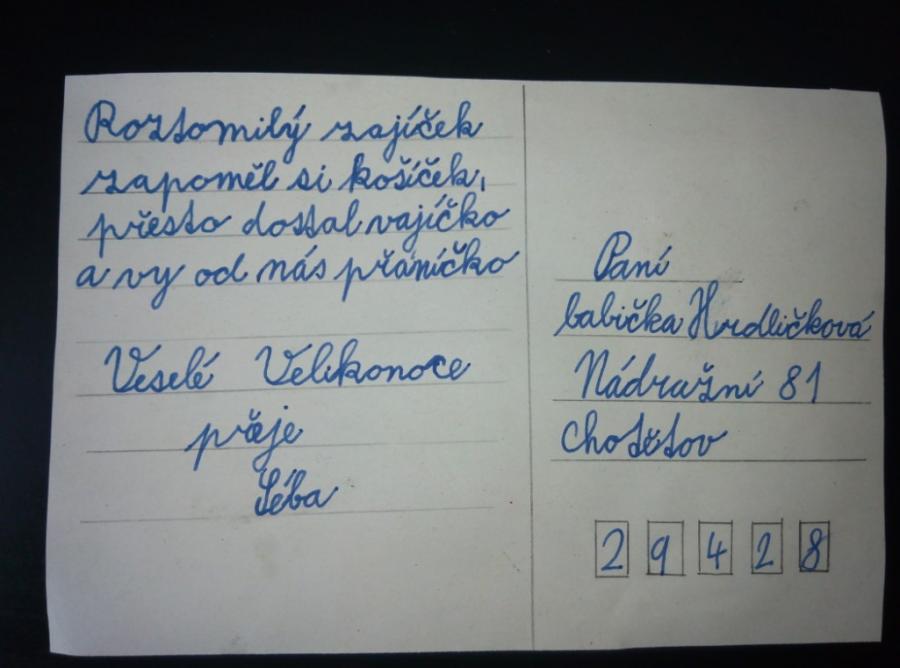 Roztomilý zajíček
zapoměl si košíček,
přesto dostal vajíčko
a vy od nás přáníčko
Veselé Velikonoce
přeje
Séba
Paní
babička Hrdličková
Nádražní 81
Chotětov
2 9 4 2 8